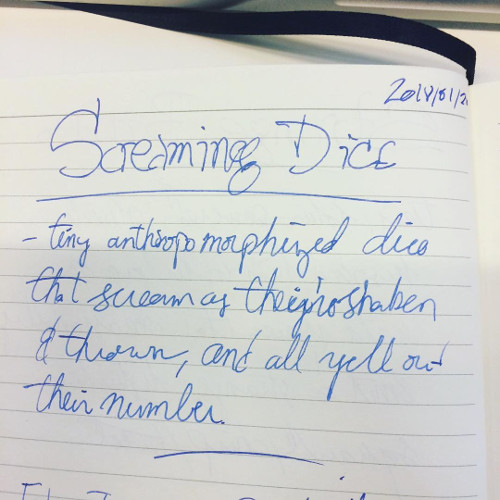 2018/01/2
Screaming Dice
- tiny anthropomorphized dice
that scream as they're shaken
& thrown, and all yell out
their number.